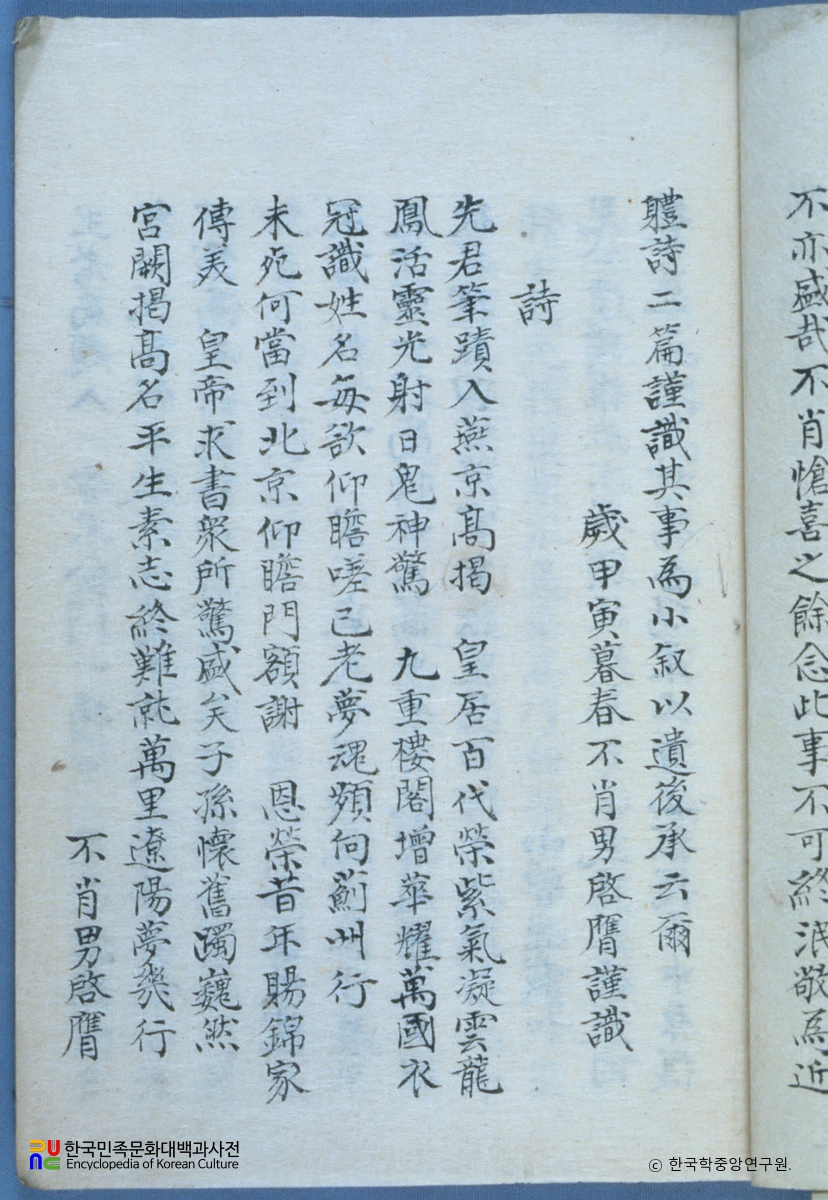 不亦盛哉不肖愴喜之餘念此事不可終泯敬為近
軆詩二篇謹識其事為小叙以遺後承云爾
歲甲寅暮春不肖男啓膺謹識
詩
先君筆蹟入燕京高揭 皇居百代榮紫氣凝雲龍
鳳活靈光射日鬼神驚 九重樓閣增華耀萬國衣
冠識姓名每欲仰瞻嗟已老夢魂頻向薊州行
未死何當到北京仰瞻門額謝 恩榮昔年賜錦家
傳美 皇帝求書衆所驚盛矣子孫懷舊躅巍然
宮闕揭高名平生素志終難就萬里遼陽夢幾行
不肖男啓膺
한국민족문화대백과사전
Encyclopedia of Korean Culture
© 한국학중앙연구원.